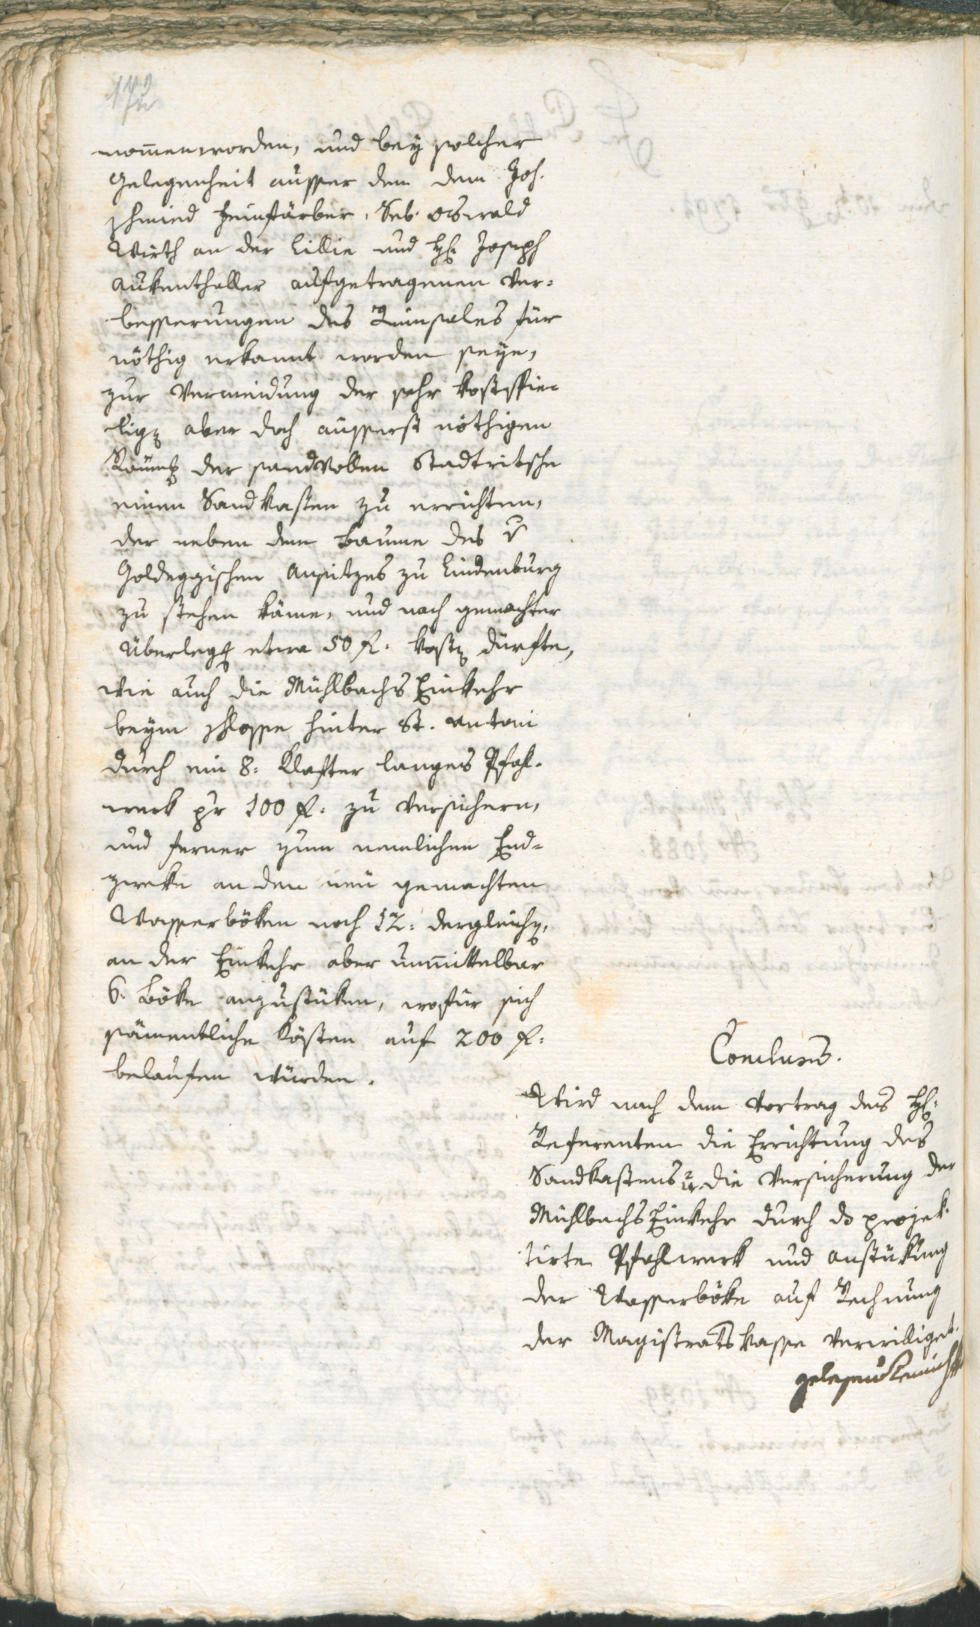 nom̅en worden, und bey solcher
Gelegenheit ausser den dem Joh.
Schmied Zeinfärber, Seb. Oswald
Wirth an der Lillie und H: Joseph
Aukenthaller aufgetragenen Ver-
besserungen des Rinsales für
nöthig erkannt worden seye,
zur Vermeidung der sehr kostspie-
lig aber doch äusserst nöthigen
Räumg der sandvollen Stadtritsche
einen Sandkasten zu errichten,
der neben dem Baume des v
Goldeggischen Ansitzes zu Lindenburg
zu stehen käme, und nach gemachter
Überlegg etwa 50 f. kost dürfte,
wie auch die Mühlbachs Einkehr
beym Schlosse hinter St. Antoni
durch ein 8: Klafter langes Pfahl-
werk pr 100 f: zu versichern,
und ferner zum nemlichen End-
zweke an den neu gemachten
Wasserböken noch 12: dergleich,
an der Einkehr aber unmittelbar
6. Böke anzustüken, wofür sich
sämentliche Kösten auf 200 f:
belaufen würden.
Conclusus.
Wird nach dem Vortrag des H:
Referenten die Errichtung des
Sandkastens u die Versicherung der
Mühlbachs Einkehr durch ds projek-
tirte Pfahlwerk und Anstükung
der Wasserböke auf Rechnung
der Magistrats Kasse verwilliget.
gelesen